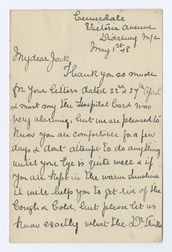 Victoria Avenue
May 1st 48
My dear Jack,
Thank you so much
for your letters dated 22nd 27th April
I must say the Hospital Card was
very alarming, but we are pleased to
know you are comfortable for a few
days & dont attempt to do anything
until your Eye is quite well & if
you are kept in the warm sunshine
it will help you to get rid of the
Cough & Cold, but please let us
know exactly what the Dr thinks